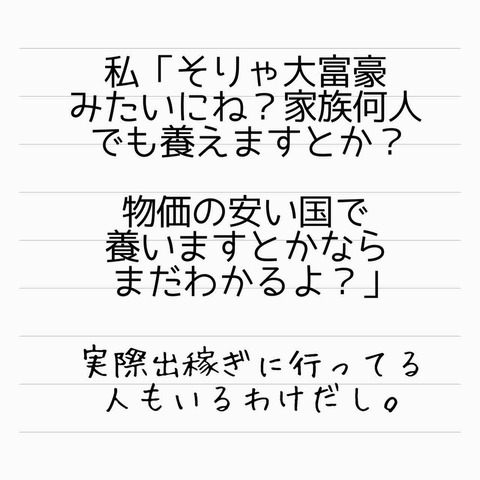 私「そりゃ大富豪
みたいにね？家族何人
でも養えますとか？
物価の安い国で
養いますとかなら
まだわかるよ？」
実際出稼ぎに行ってる
人もいるわけだし。